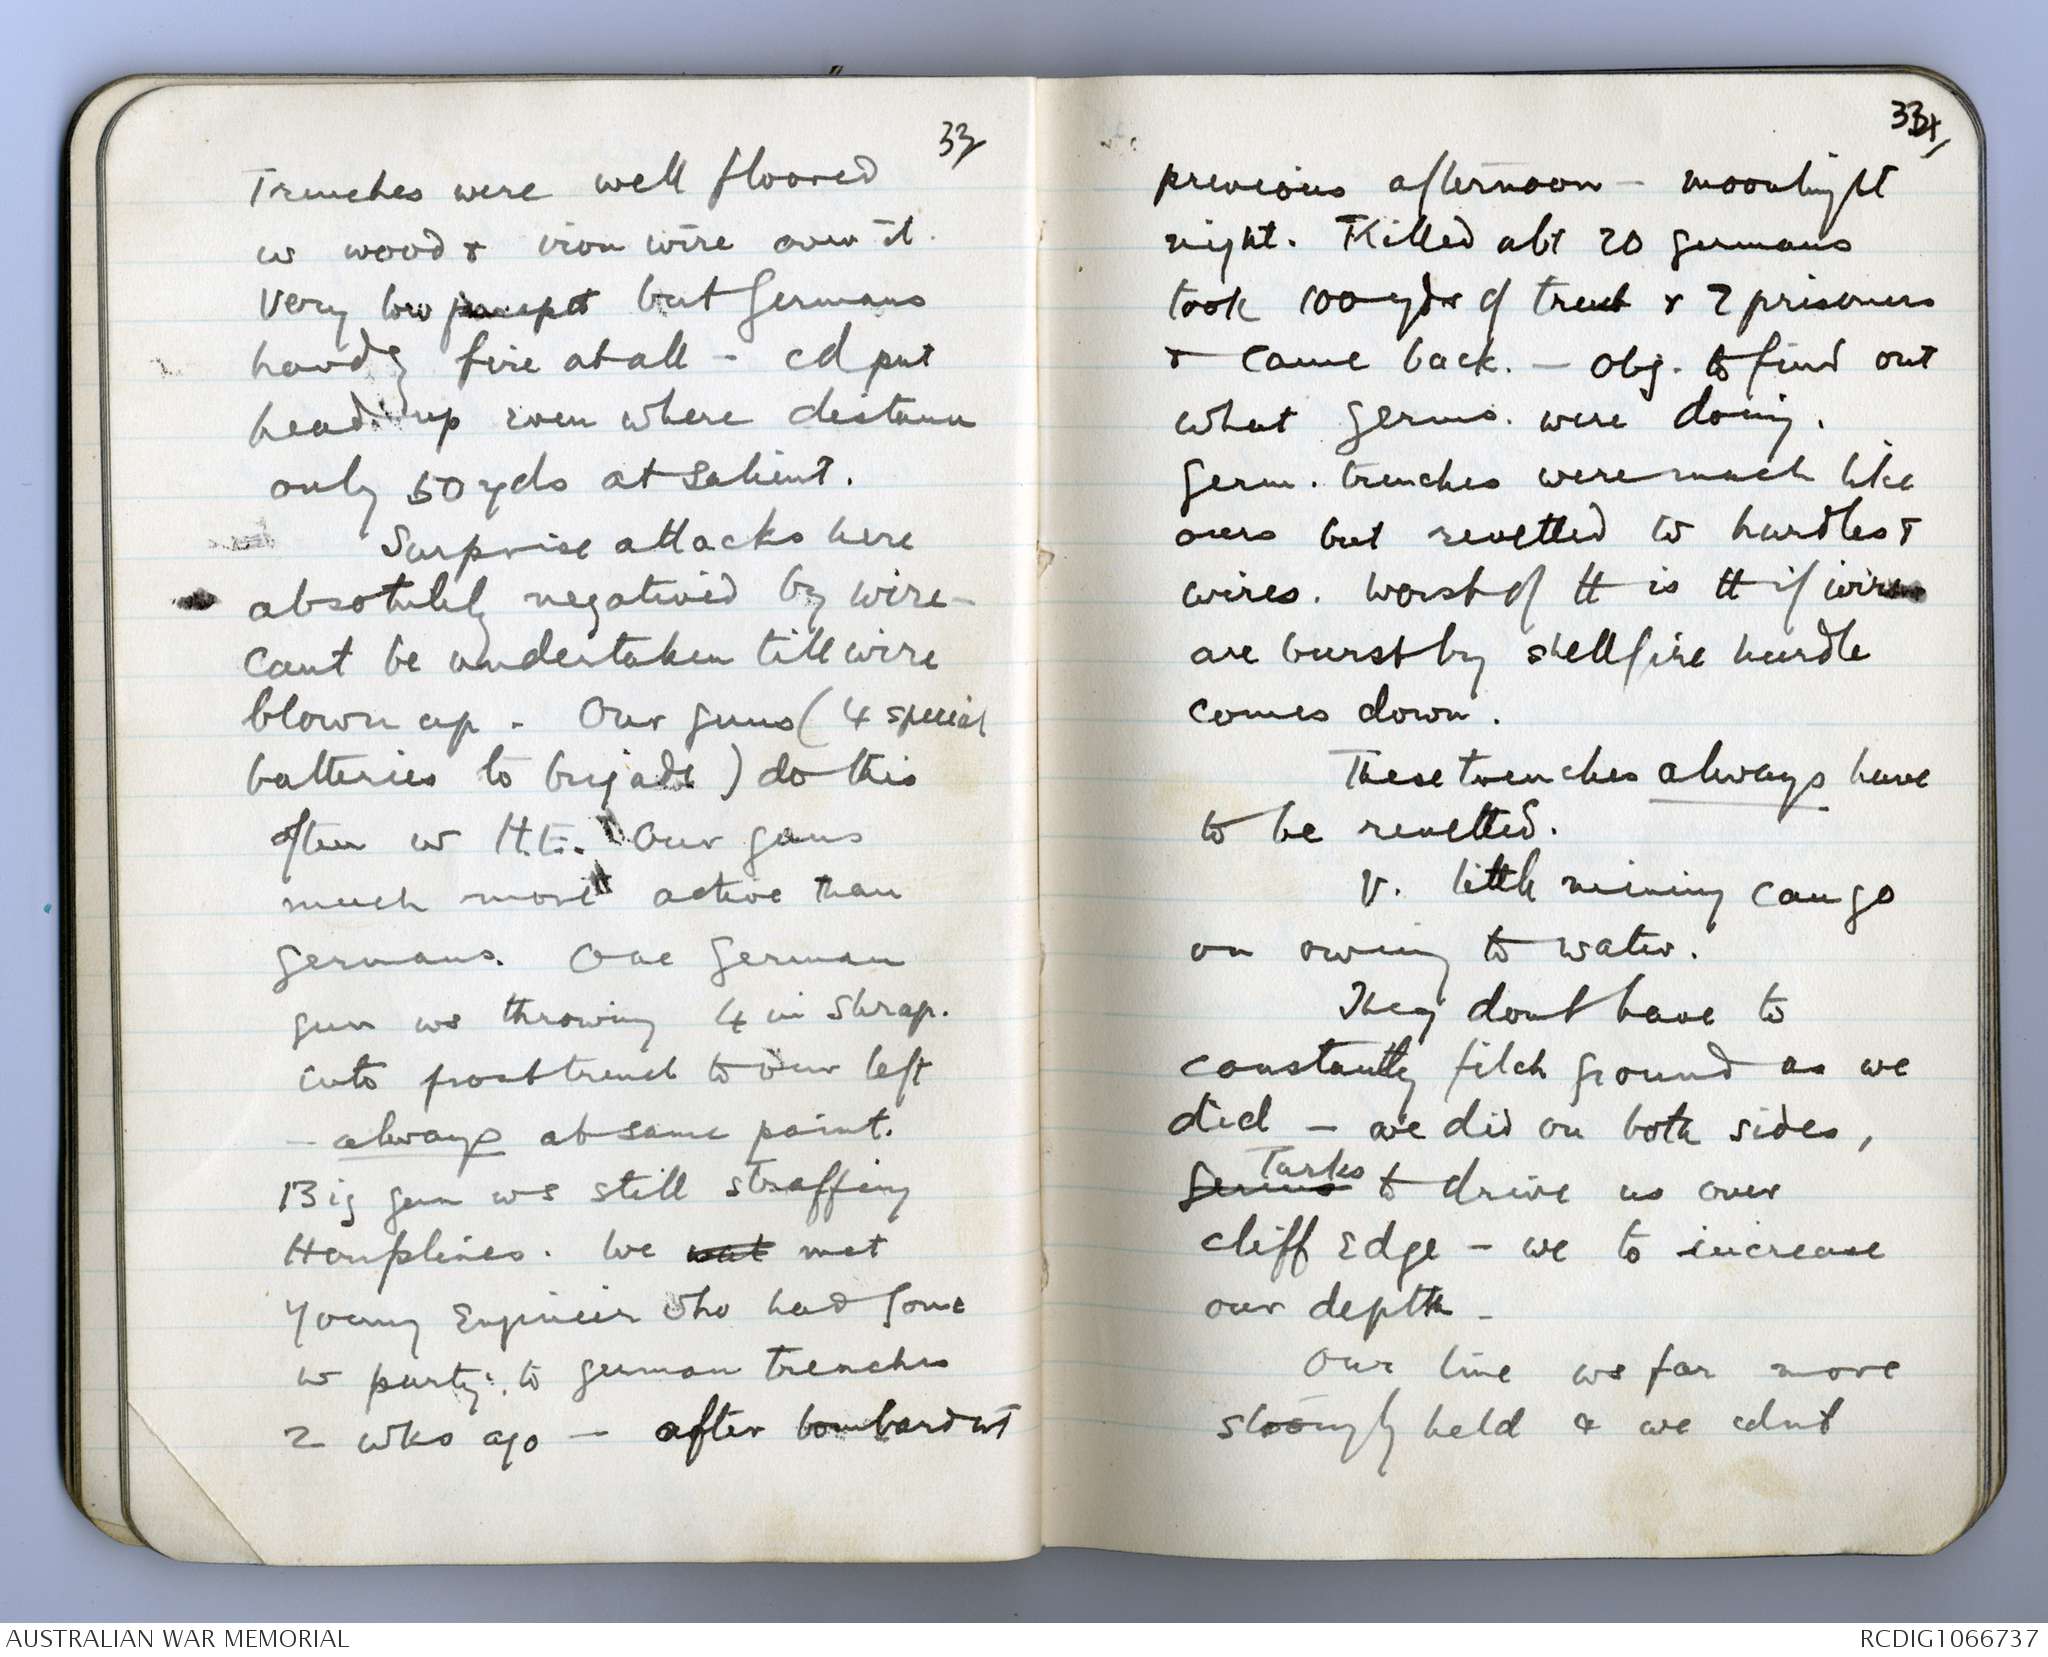 33
Trenches were well floored
w wood & iron wire over it.
Very low parapet but Germans
hardly fire at all - cd put
head up even where distance
only 50 yds at salient.
Surprise attacks here
absolutely negatived by wire -
cant be undertaken till wire
blown up. Our guns (4 special
batteries to brigade) do this
often w H.E. Our guns
much more active than
Germans. One German
gun ws throwing 4 in shrap.
into front trench to our left
- always at same point.
Big gun ws still straffing
Houplines. We met
young Engineer who had gone
w party to German trenches
2 wks ago - after bombardmt
previous afternoon - moonlight
night. Killed abt 20 Germans
took 100 yds of trench & 2 prisoners
& came back. - Obj. to find out
what Germs. were doing.
Germ. trenches were much like
ours but revetted w hurdles &
wires. Worst of tt is tt if wires
are burst by shellfire hurdle
comes down.
These trenches always have
to be revetted.
V. little mining can go
on owing to water.
They dont have to
constantly filch ground as we
did - we did on both sides,
Germs Turks to drive us over
cliff edge - we to increase
our depth -
Our line ws far more
strongly held & we cdnt
AUSTRALIAN WAR MEMORIAL
RCDIG1066737